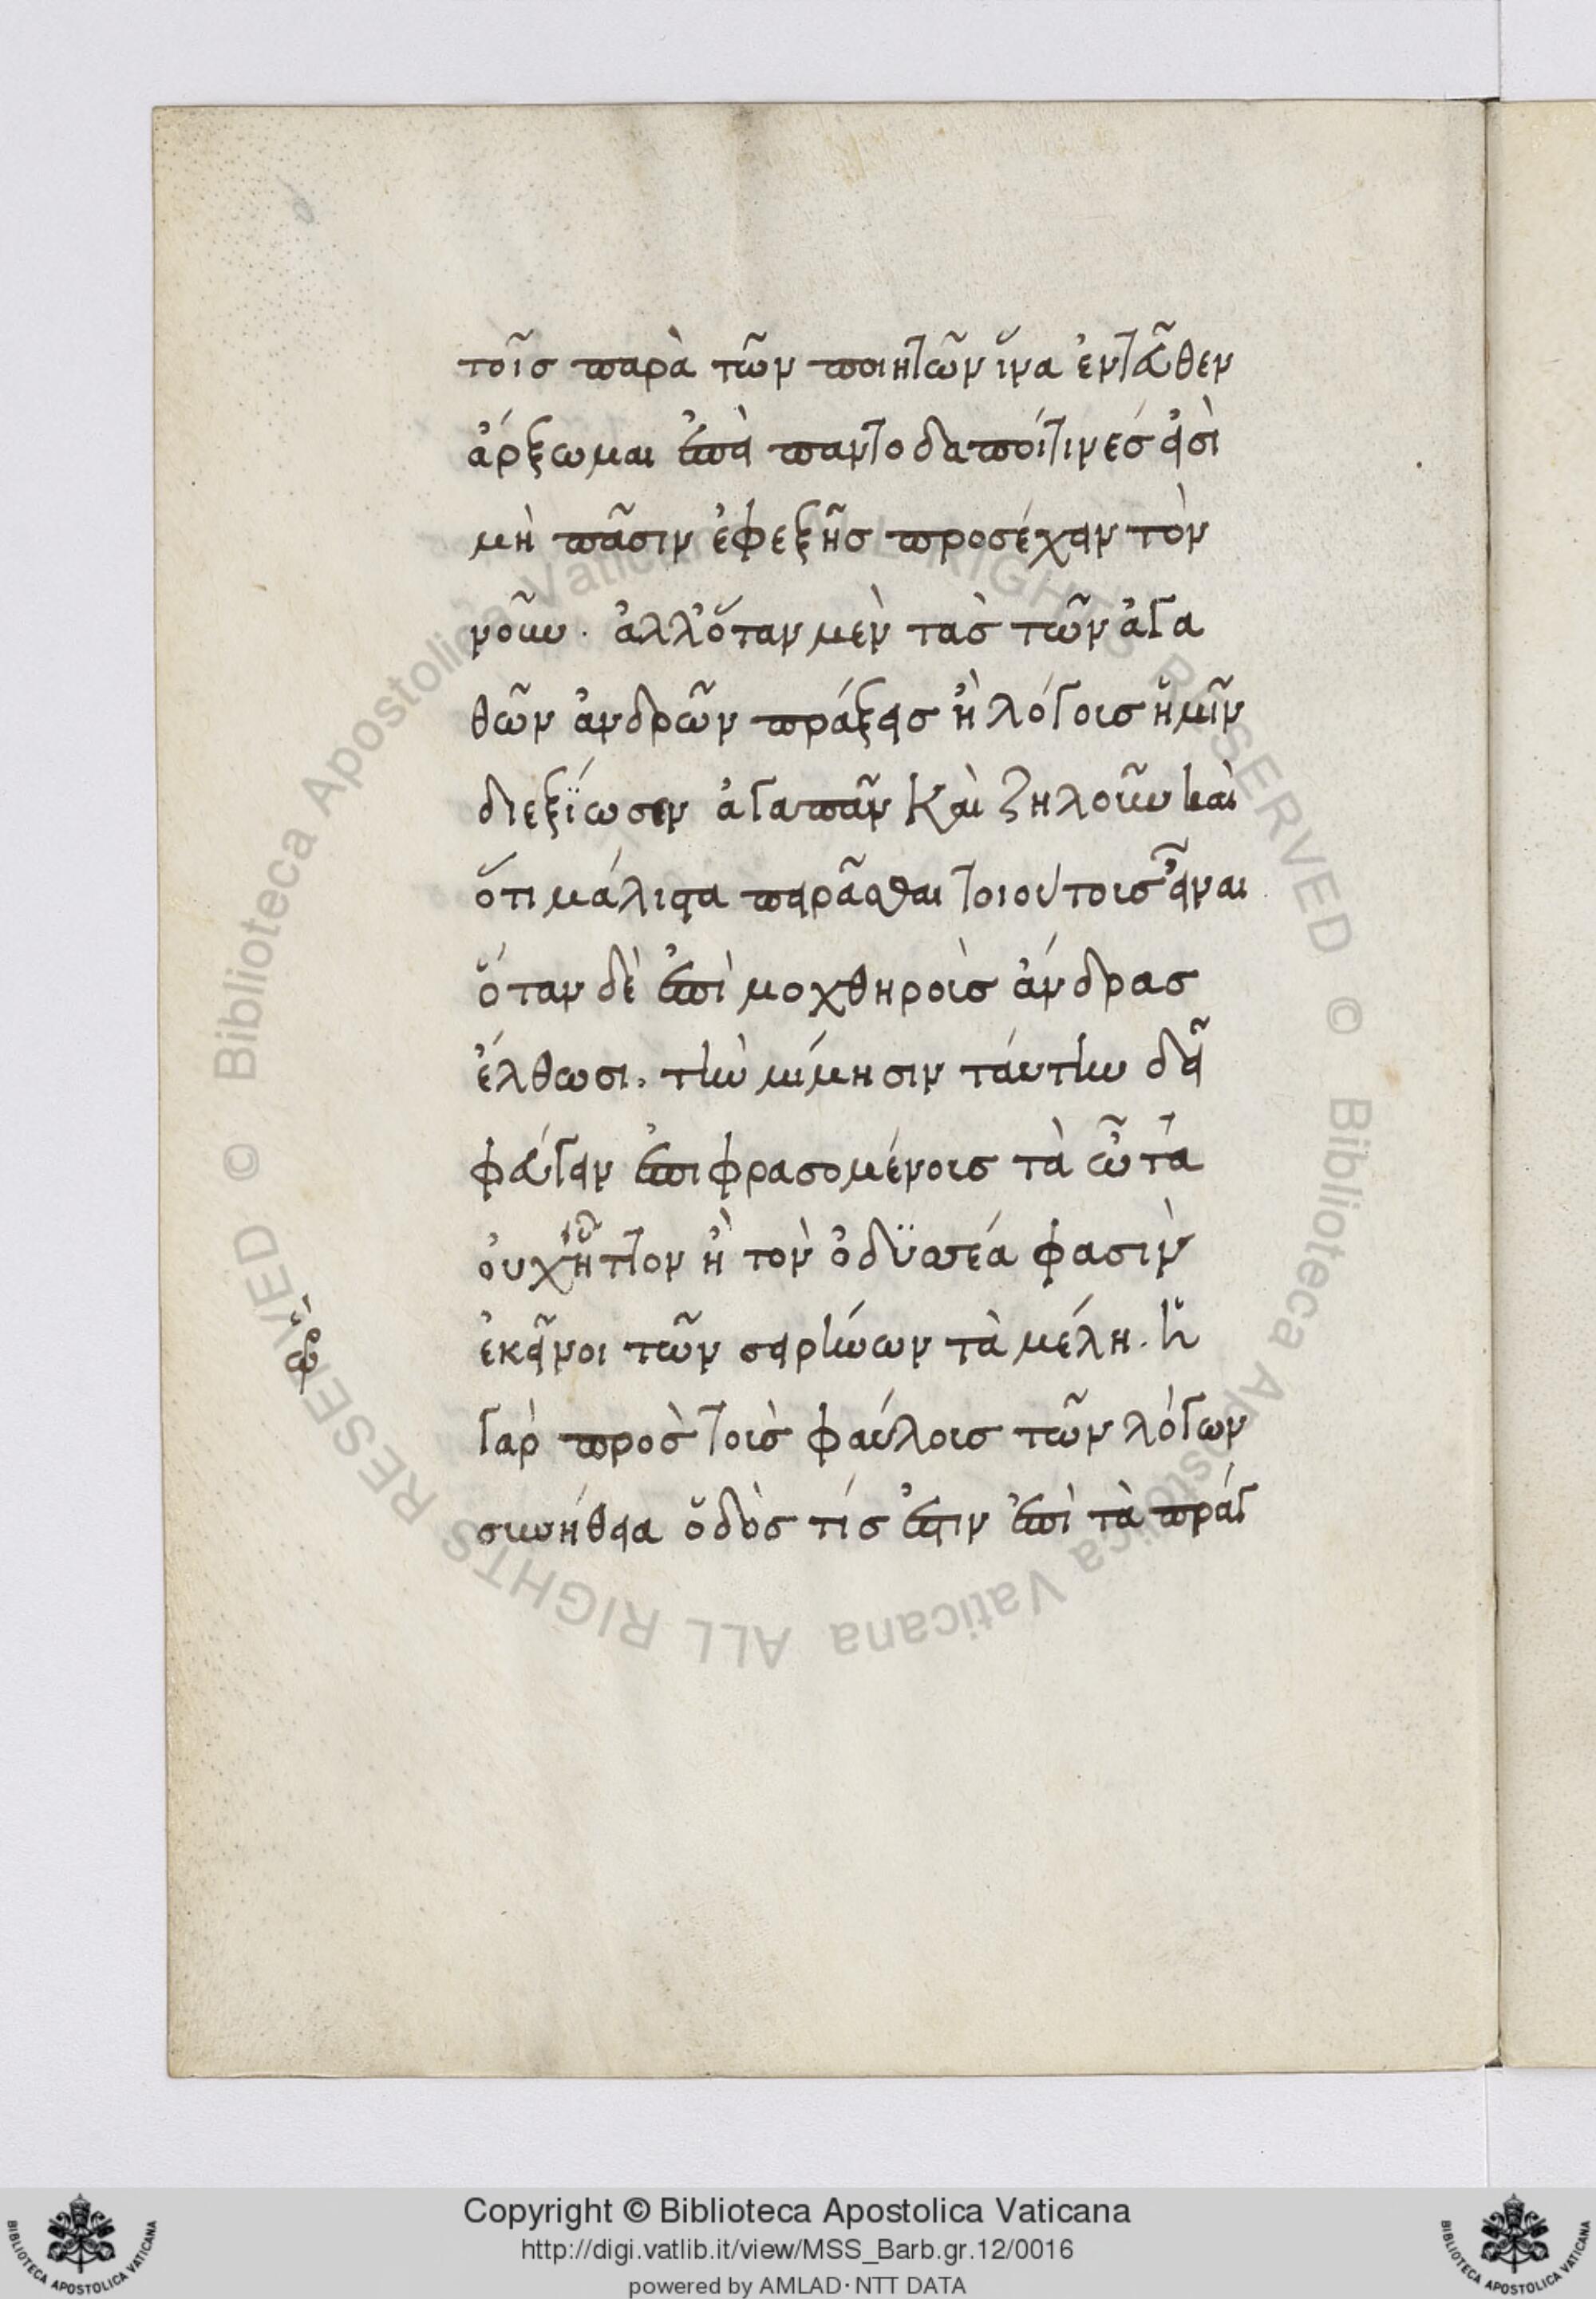 τοῖς παρὰ τῶν ποιητῶν ἵνα ἐντεῦθεν
ἄρξωμαι ἐπεὶ παντοδαποί τινές εἰσὶ
μὴ πᾶσιν ἐφεξῆς προσέχειν τὸν
νοῦν. ἀλλ' ὅταν μὲν τὰς τῶν ἀγα
θῶν ἀνδρῶν πράξεις ἢ λόγους ἡμῖν
διεξΐωσιν ἀγαπᾶν καὶ ζηλοῦν καὶ
ὅτι μάλιστα πειρᾶσθαι τοιούτους εἶναι
ὅταν δὲ ἐπὶ μοχθηροὺς ἄνδρας
ἔλθωσι. τὴν μίμησιν ταύτην δεῖ
φεύγειν ἐπιφρασομένους τὰ ὦτα
οὐχ ἧττον ἢ τὸν ὀδϋσσέα φασὶν
ἐκεῖνοι τῶν σειρήνων τὰ μέλη. ἡ
γὰρ πρὸς τοὺς φαύλους τῶν λόγων
συνήθεια ὁδός τίς ἐστιν ἐπὶ τὰ πράγ
Copyright © Biblioteca Apostolica Vaticana
http://digi.vatlib.it/view/MSS_Barb.gr.12/0016
powered by AMLAD·NTT DATA
BIBLIOTECA APOSTOLICA VATICANA
BIBLIOTECA APOSTOLICA VATICANA
© Biblioteca Apostolica Vaticana ALL RIGHTS RESERVED © Biblioteca Apostolica Vaticana ALL RIGHTS RESERVED